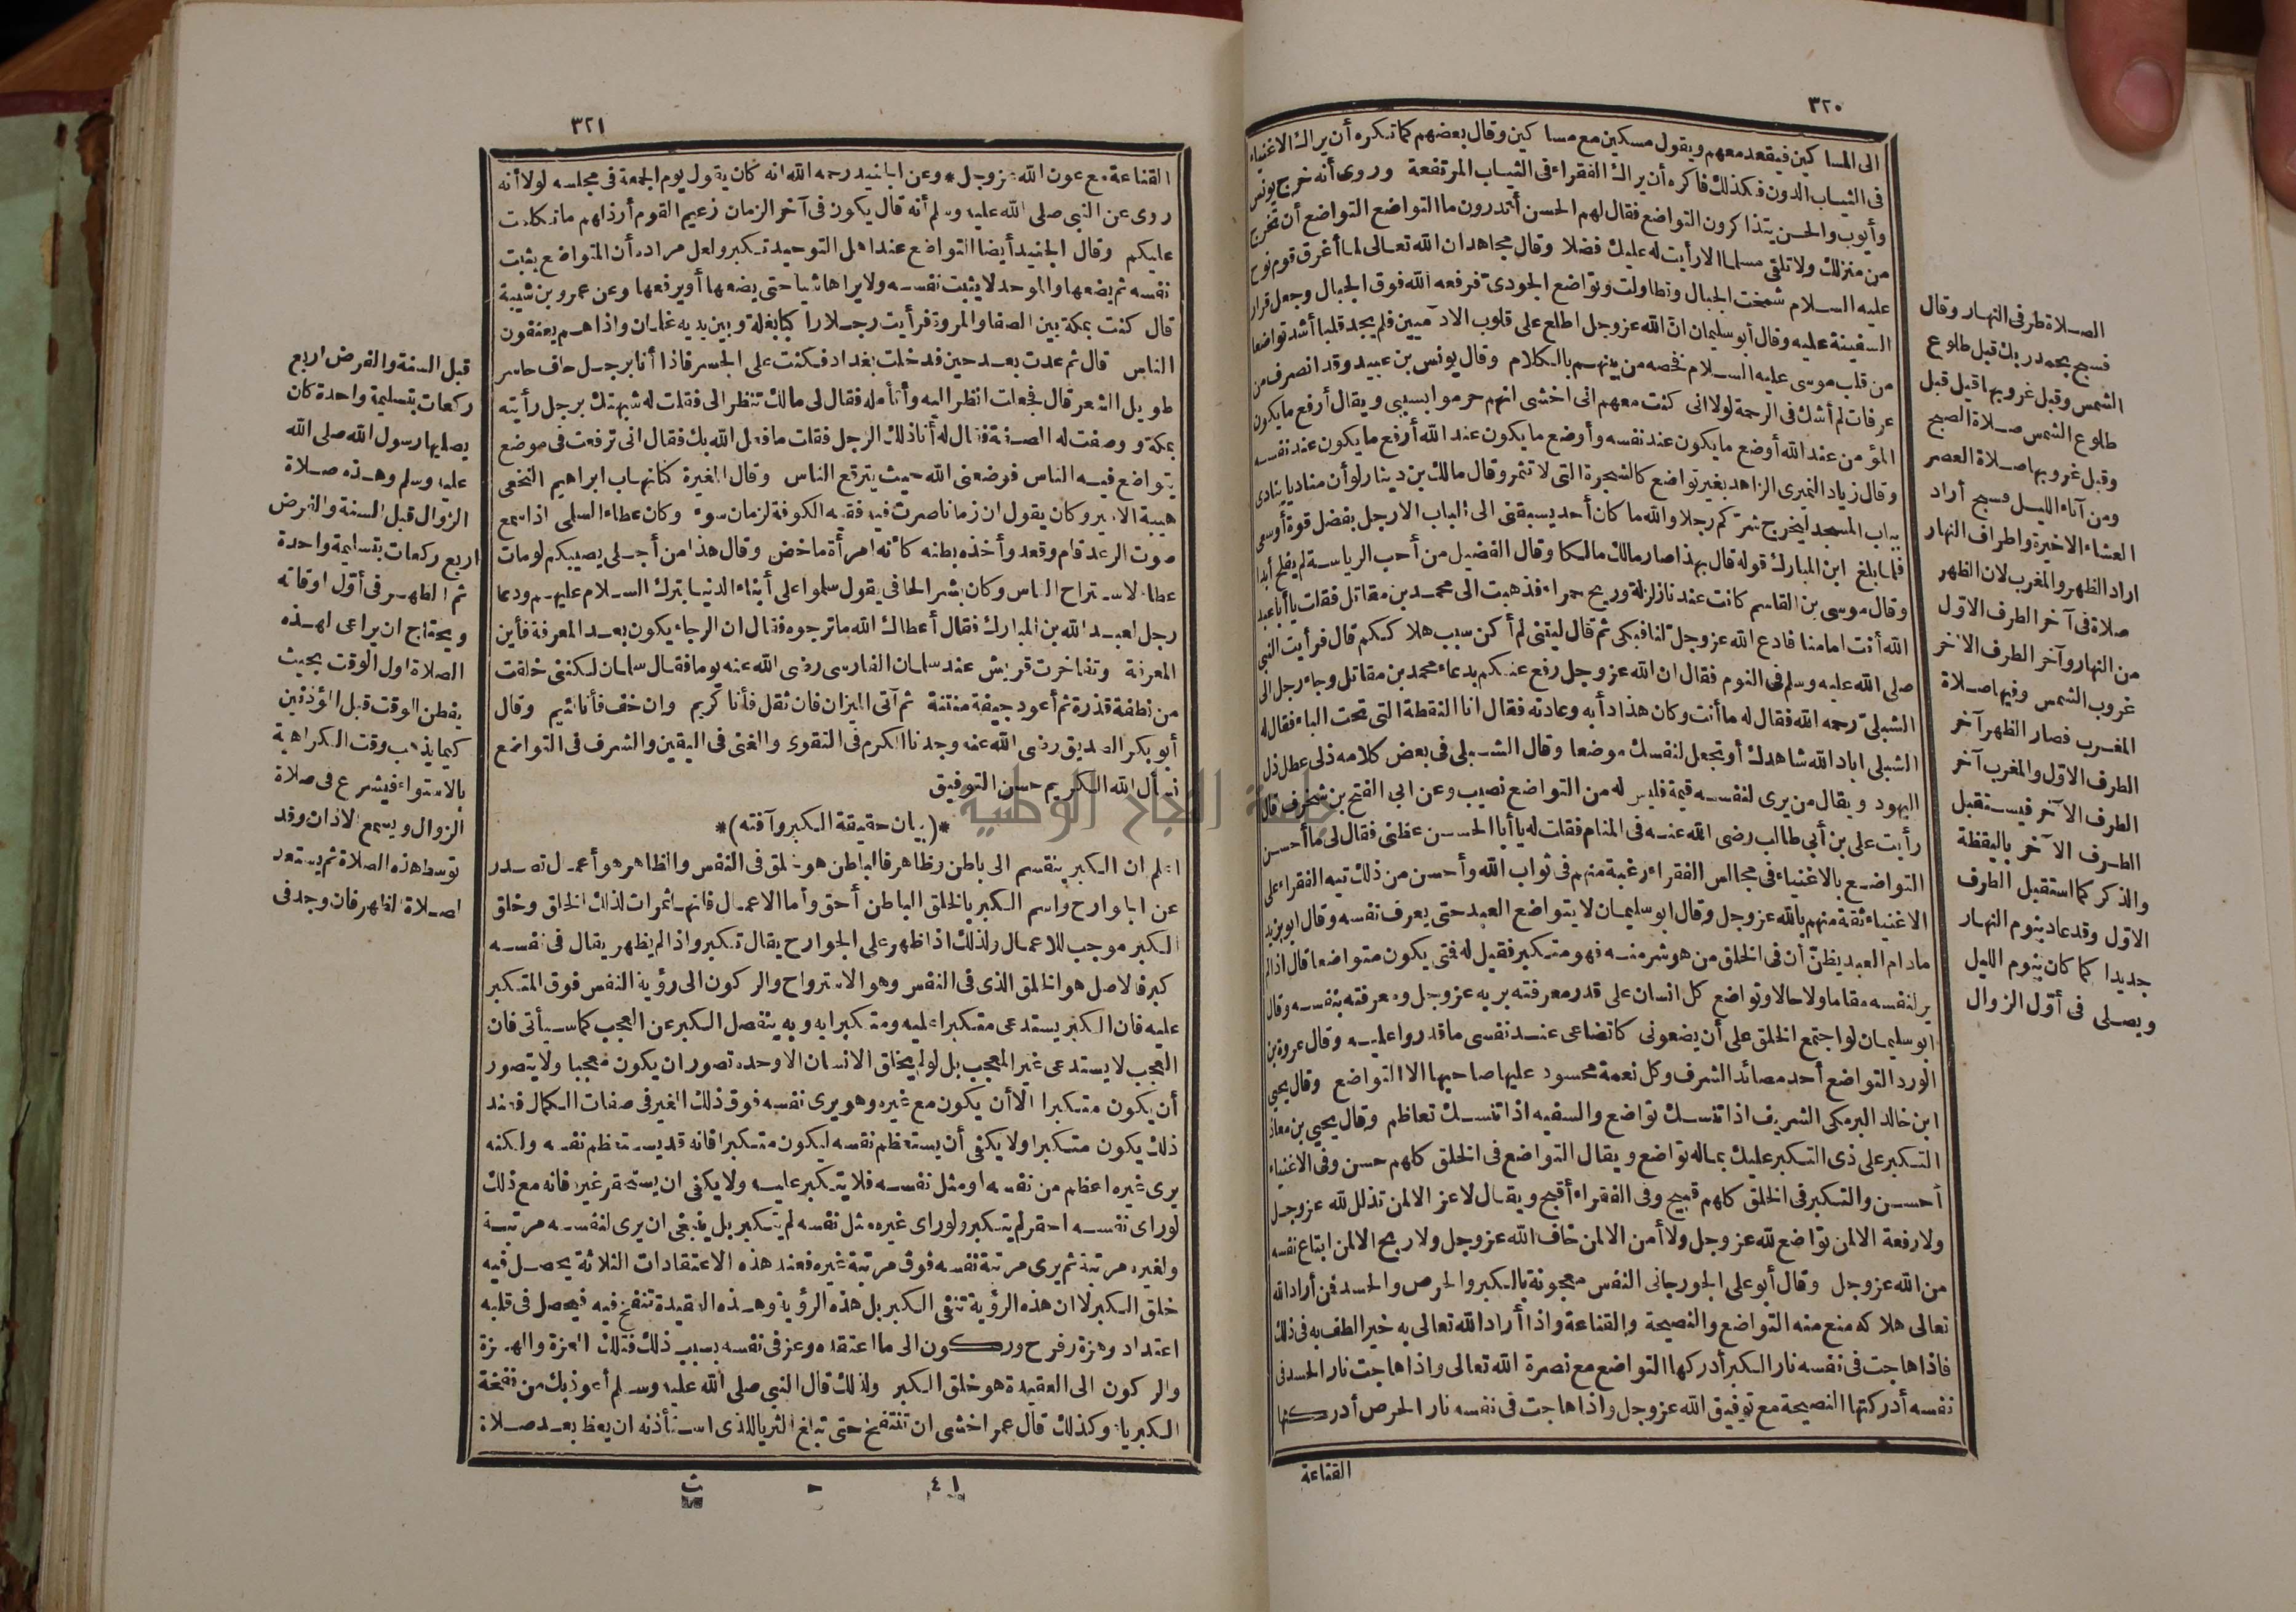 ٣٢٠
الى المساكين فيقعد معهم ويقول مسكين مع مساكين وقال بعضهم كما تكره أن يراك الاغنياء
فى الثياب الدون فكذلك فاكره أن يراك الفقراء فى الثياب المرتفعة وروى أنه خرج يونس
وأيوب والحسن يتذاكرون التواضع فقال لهم الحسن أتدرون ما التواضع التواضع أن تخرج
من منزلك ولا تلقى مسلما الا رأيت له عليك فضلا وقال مجاهد ان الله تعالى لما أغرق قوم نوح
عليه السلام شمخت الجبال وتطاولت وتواضع الجودى فرفعه الله فوق الجبال وجعل قرار
السفينة عليه وقال أبو سليمان انّ الله عز وجل اطلع على قلوب الآدميين فلم يجد قلبا أشد تواضعا
من قلب موسى عليه السلام فخصه من بينهم بالكلام وقال يونس بن عبيد وقد انصرف من
عرفات لم أشك فى الرحمة لولا انى كنت معهم انى اخشى انهم حرموا بسببى ويقال أرفع ما يكون
المؤمن عند الله أوضع ما يكون عند نفسه وأوضع ما يكون عند الله أرفع ما يكون عند نفسه
وقال زياد النميرى الزاهد بغير تواضع كالشجرة التى لا تثمر وقال مالك بن دينار لو أن مناديا ينادى
بباب المسجد ليخرج شركم رجلا والله ما كان أحد يسبقنى الى الباب الا رجل بفضل قوة أو سعى
فلما بلغ ابن المبارك قوله قال بهذا صار مالك مالكا وقال الفضيل من أحب الرياسة لم يفلح أبدا
وقال موسى بن القاسم كانت عندنا زلزلة وريح حمراء فذهبت الى محمد بن مقاتل فقلت يا أبا عبد
الله أنت امامنا فادع الله عز وجل لنا فبكى ثم قال ليتنى لم أكن سبب هلاككم قال فرأيت النبى
صلى الله عليه وسلم فى النوم فقال ان الله عز وجل رفع عنكم بدعاء محمد بن مقاتل وجاء رجل الى
الشبلى رحمه الله فقال له ما أنت وكان هذا دأبه وعادته فقال انا النقطة التى تحت الباء فقال له
الشبلى اباد الله شاهدك أو تجعل لنفسك موضعا وقال الشبلى فى بعض كلامه ذلى عطل ذل
اليهود ويقال من يرى لنفسه قيمة فليس له من التواضع نصيب وعن ابى الفتح بن شخرف قال
رأيت على بن أبى طالب رضى الله عنه فى المنام فقلت له يا أبا الحسن عظنى فقال لى ما أحسن
التواضع بالاغنياء فى مجالس الفقراء رغبة منهم فى ثواب الله وأحسن من ذلك تيه الفقراء على
الاغنياء ثقة منهم بالله عز وجل وقال ابو سليمان لا يتواضع العبد حتى يعرف نفسه وقال ابو يزيد
مادام العبد يظنّ أن فى الخلق من هو شر منه فهو متكبر فقيل له فمتى يكون متواضعا قال اذا لم
ير لنفسه مقاما ولا حالا وتواضع كل انسان على قدر معرفته بربه عز وجل ومعرفته بنفسه وقال
ابو سليمان لو اجتمع الخلق على أن يضعونى كاتضاعى عند نفسى ما قدروا عليه وقال عروة بن
الورد التواضع أحد مصائد الشرف وكل نعمة محسود عليها صاحبها الا التواضع وقال يحيى
ابن خالد البرمكى الشريف اذا تنسك تواضع والسفيه اذا تنسك تعاظم وقال يحيى بن معاذ
التكبر على ذى التكبر عليك بماله تواضع ويقال التواضع فى الخلق كلهم حسن وفى الاغنياء
أحسن والتكبر فى الخلق كلهم قبيح وفى الفقراء أقبح ويقال لا عز الا لمن تذلل لله عز وجل
ولا رفعة الا لمن تواضع لله عز وجل ولا أمن الا لمن خاف الله عز وجل ولا ربح الا لمن ابتاع نفسه
من الله عز وجل وقال أبو على الجورجانى النفس معجونة بالكبر والحرص والحسد فمن أراد الله
تعالى هلاكه منع منه التواضع والنصيحة والقناعة واذا أراد الله تعالى به خيرا لطف به فى ذلك
فاذا هاجت فى نفسه نار الكبر أدركها التواضع مع نصرة الله تعالى واذا هاجت نار الحسد فى
نفسه أدركتها النصيحة مع توفيق الله عز وجل واذا هاجت فى نفسه نار الحرص أدركتها
القناعة
الصلاة طرفى النهار وقال
فسبح بحمد ربك قبل طلوع
الشمس وقبل غروبها قيل قبل
طلوع الشمس صلاة الصبح
وقبل غروبها صلاة العصر
ومن آناء الليل فسبح أراد
العشاء الاخيرة واطراف النهار
اراد الظهر والمغرب لان الظهر
صلاة فى آخر الطرف الاوّل
من النهار وآخر الطرف الآخر
غروب الشمس وفيها صلاة
المغرب فصار الظهر آخر
الطرف الاوّل والمغرب آخر
الطرف الآخر فيستقبل
الطرف الآخر باليقظة
والذكر كما استقبل الطرف
الاوّل وقد عاد بنوم النهار
جديدا كما كان بنوم الليل
ويصلى فى أوّل الزوال
٣٢١
القناعة مع عون الله عز وجل * وعن الجنيد رحمه الله انه كان يقول يوم الجمعة فى مجلسه لولا أنه
روى عن النبى صلى الله عليه وسلم أنه قال يكون فى آخر الزمان زعيم القوم أرذلهم ما تكلمت
عليكم وقال الجنيد أيضا التواضع عند اهل التوحيد تكبر ولعل مراده أن المتواضع يثبت
نفسه ثم يضعها والموحد لا يثبت نفسه ولا يراها شيأ حتى يضعها أو يرفعها وعن عمرو بن شيبة
قال كنت بمكة بين الصفا والمروة فرأيت رجلا راكبا بغلة وبين يديه غلمان واذا هم يعنفون
الناس قال ثم عدت بعد حين فدخلت بغداد فكنت على الجسر فاذا أنا برجل حاف حاسر
طويل الشعر قال فجعلت انظر اليه وأتأمله فقال لى مالك تنظر الى فقلت له شبهتك برجل رأيته
بمكة ووصفت له الصفة فقال له أنا ذلك الرجل فقلت ما فعل الله بك فقال انى ترفعت فى موضع
يتواضع فيه الناس فوضعنى الله حيث يترفع الناس وقال المغيرة كنا نهاب ابراهيم النخعى
هيبة الامير وكان يقول ان زمانا صرت فيه فقيه الكوفة لزمان سوء وكان عطاء السلمى اذا سمع
صوت الرعد قام وقعد وأخذه بطنه كأنه امرأة ماخض وقال هذا من أجلى يصيبكم لو مات
عطاء لاستراح الناس وكان بشر الحافى يقول سلموا على أبناء الدنيا بترك السلام عليهم ودعا
رجل لعبد الله بن المبارك فقال أعطاك الله ما ترجوه فقال ان الرجاء يكون بعد المعرفة فأين
المعرفة وتفاخرت قريش عند سلمان الفارسى رضى الله عنه يوما فقال سلمان لكننى خلقت
من نطفة قذرة ثم أعود جيفة منتنة ثم آتى الميزان فان ثقل فأنا كريم وان خف فأنا لئيم وقال
أبو بكر الصديق رضى الله عنه وجدنا الكرم فى التقوى والغنى فى اليقين والشرف فى التواضع
نسأل الله الكريم حسن التوفيق
*(بيان حقيقة الكبر وآفته)*
اعلم ان الكبر ينقسم الى باطن وظاهر فالباطن هو خلق فى النفس والظاهر هو أعمال تصدر
عن الجوارح واسم الكبر بالخلق الباطن أحق وأما الاعمال فانها ثمرات لذلك الخلق وخلق
الكبر موجب للاعمال ولذلك اذا ظهر على الجوارح يقال تكبر واذا لم يظهر يقال فى نفسه
كبر فالاصل هو الخلق الذى فى النفس وهو الاسترواح والركون الى رؤية النفس فوق المتكبر
عليه فان الكبر يستدعى متكبرا عليه ومتكبرا به وبه ينفصل الكبر عن العجب كما سيأتى فان
العجب لا يستدعى غير المعجب بل لو لم يخلق الانسان الا وحده تصور ان يكون معجبا ولا يتصور
أن يكون متكبرا الا أن يكون مع غيره وهو يرى نفسه فوق ذلك الغير فى صفات الكمال فعند
ذلك يكون متكبرا ولا يكفى أن يستعظم نفسه ليكون متكبرا فانه قد يستعظم نفسه ولكنه
يرى غيره اعظم من نفسه او مثل نفسه فلا يتكبر عليه ولا يكفى ان يستحقر غيره فانه مع ذلك
لو راى نفسه احقر لم يتكبر ولو راى غيره مثل نفسه لم يتكبر بل ينبغى ان يرى لنفسه مرتبة
ولغيره مرتبة ثم يرى مرتبة نفسه فوق مرتبة غيره فعند هذه الاعتقادات الثلاثة يحصل فيه
خلق الكبر لا ان هذه الرؤية تنفى الكبر بل هذه الرؤية وهذه العقيدة تنفخ فيه فيحصل فى قلبه
اعتداد وهزة وفرح وركون الى ما اعتقده وعز فى نفسه بسبب ذلك فتلك العزة والهزة
والركون الى العقيدة هو خلق الكبر ولذلك قال النبى صلى الله عليه وسلم أعوذ بك من نفخة
الكبرياء وكذلك قال عمر اخشى ان تنتفخ حتى تبلغ الثريا للذى استأذنه ان يعظ بعد صلاة
٤١
ث
قبل السنة والفرض اربع
ركعات بتسليمة واحدة كان
يصليها رسول الله صلى الله
عليه وسلم وهذه صلاة
الزوال قبل السنة والفرض
اربع ركعات بتسليمة واحدة
ثم الظهر فى أوّل اوقاته
ويحتاج ان يراعى لهذه
الصلاة اول الوقت بحيث
يفطن الوقت قبل المؤذنين
كيما يذهب وقت الكراهية
بالاستواء فيشرع فى صلاة
الزوال ويسمع الاذان وقد
توسط هذه الصلاة ثم يستعد
لصلاة الظهر فان وجد فى